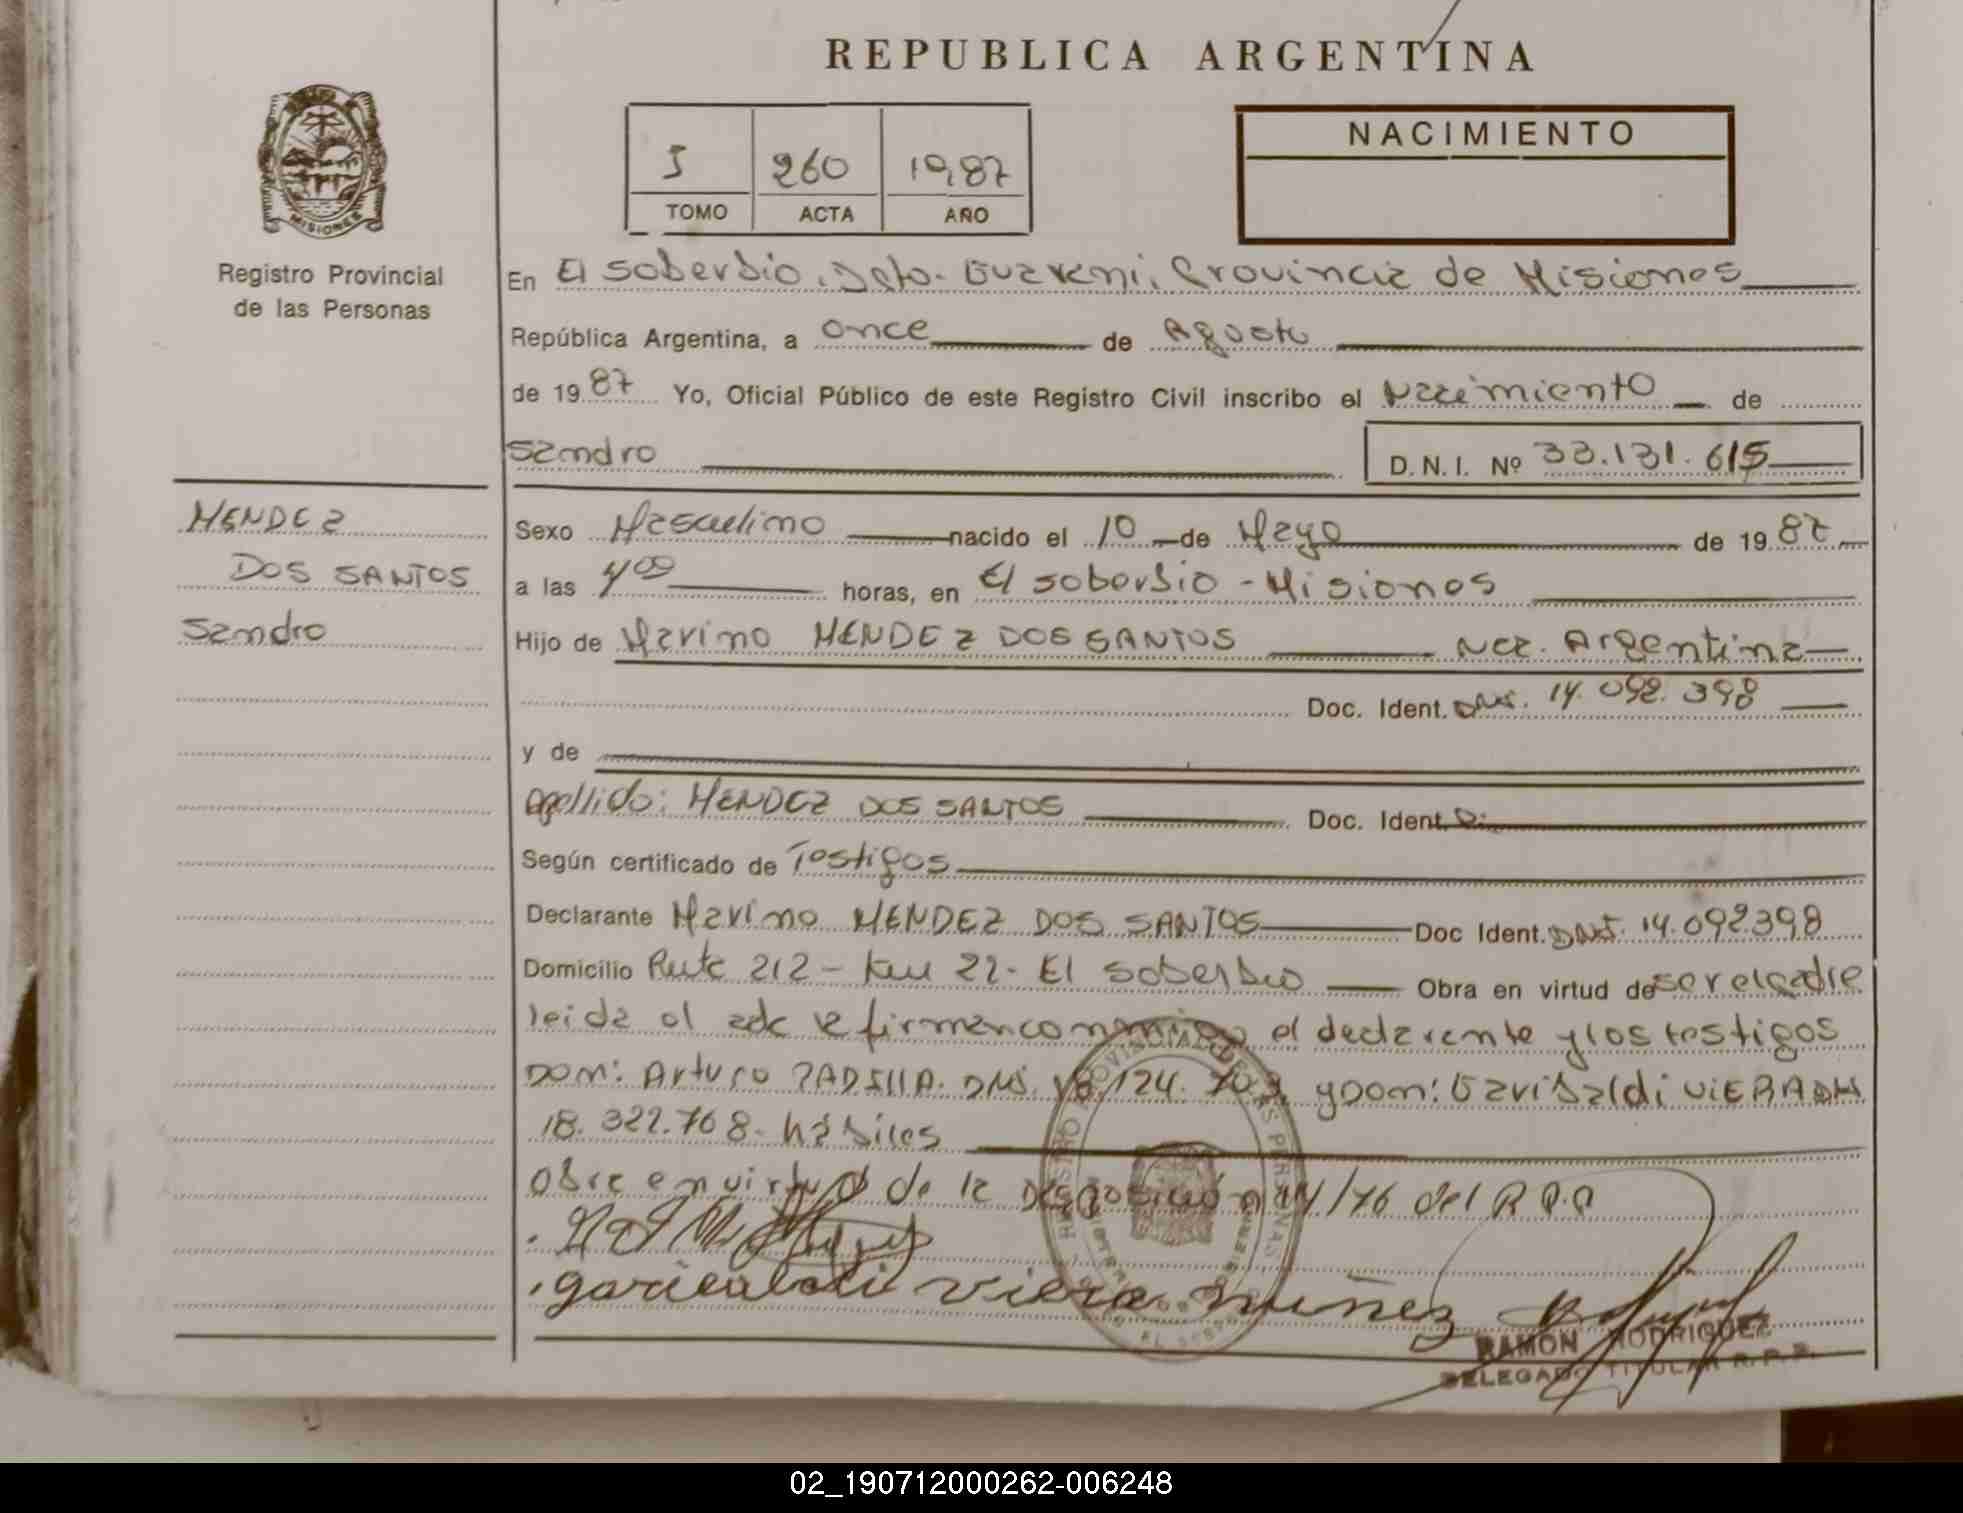 REPUBLICA ARGENTINA
MISIONES
Registro Provincial
de las Personas
260 1987
TOMO ACTA AÑO
NACIMIENTO
En El Soberbio, Dpto. Guarani, Provincia de Misiones
República Argentina, a once de Agosto
de 1987 Yo, Oficial Público de este Registro Civil inscribo el Nacimiento de
Sandro D.N.I. Nº 33.131.615
MENDEZ
DOS SANTOS
Sandro
Sexo Masculino nacido el 10 de Mayo de 1987
a las 4,00 horas, en El Soberbio - Misiones
Hijo de Marino MENDEZ DOS SANTOS Nac. Argentina
Doc. Ident. DNI. 14.092.398
y de
Apellido: MENDEZ DOS SANTOS Doc. Ident.
Según certificado de Testigos
Declarante Marino MENDEZ DOS SANTOS Doc Ident. DNI. 14.092.398
Domicilio Ruta 212 - Km 22 - El Soberbio Obra en virtud de ser el padre
leida el acta la firman conmigo el declarante y los testigos
Don: Arturo PADILLA. DNI. 18.124. y Don: Garibaldi VIERA DNI
18.322.768 - hábiles
Obra en virtud de la Disposición 14/76 del R.P.P
garibaldi Viera nuñez
RAMON RODRIGUEZ
DELEGADO TITULAR R.P.P.
02_190712000262-006248